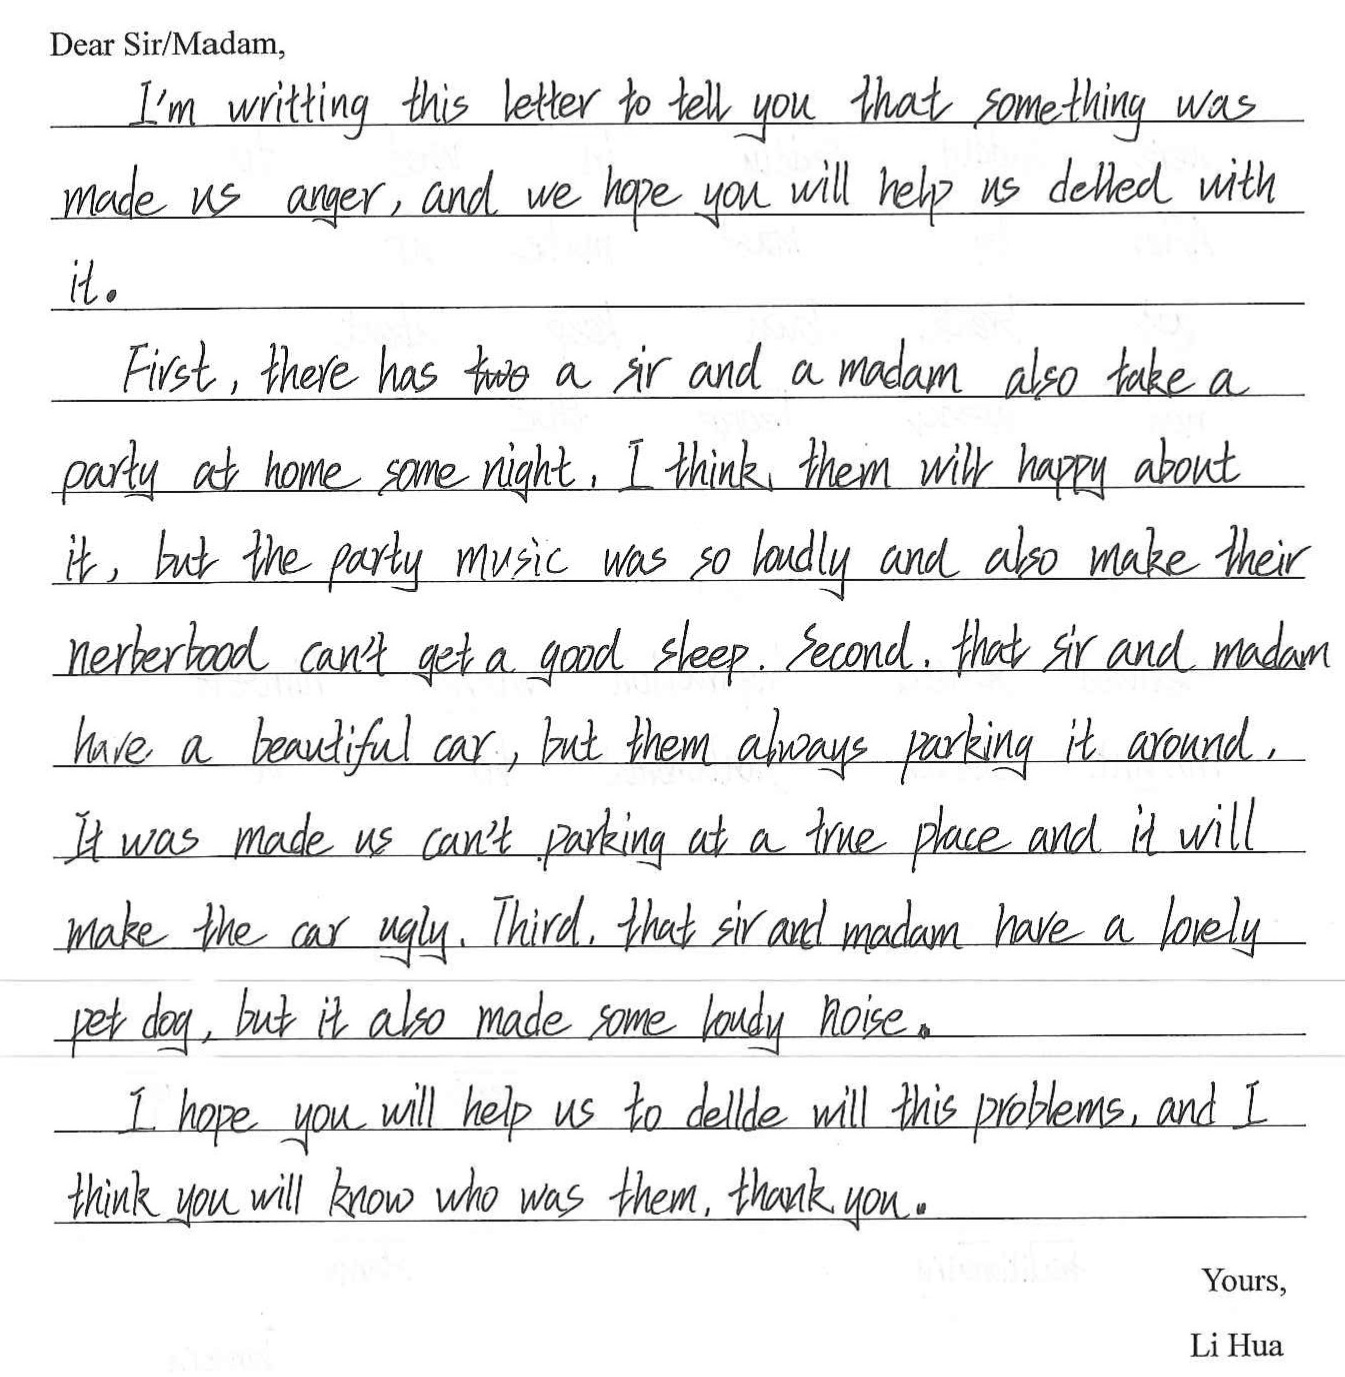 Dear Sir/Madam,
I'm writting this letter to tell you that something was
made us anger, and we hope you will help us delled with
it.
First, there has two a sir and a madam also take a
party at home some night. I think them will happy about
it, but the party music was so loudly and also make their
nerberbood can't get a good sleep. Second. that sir and madam
have a beautiful car, but them always parking it around.
It was made us can't parking at a true place and it will
make the car ugly. Third. that sir and madam have a lovely
pet dog, but it also made some loudy noise.
I hope you will help us to dellde will this problems, and I
think you will know who was them. thank you.
Yours,
Li Hua